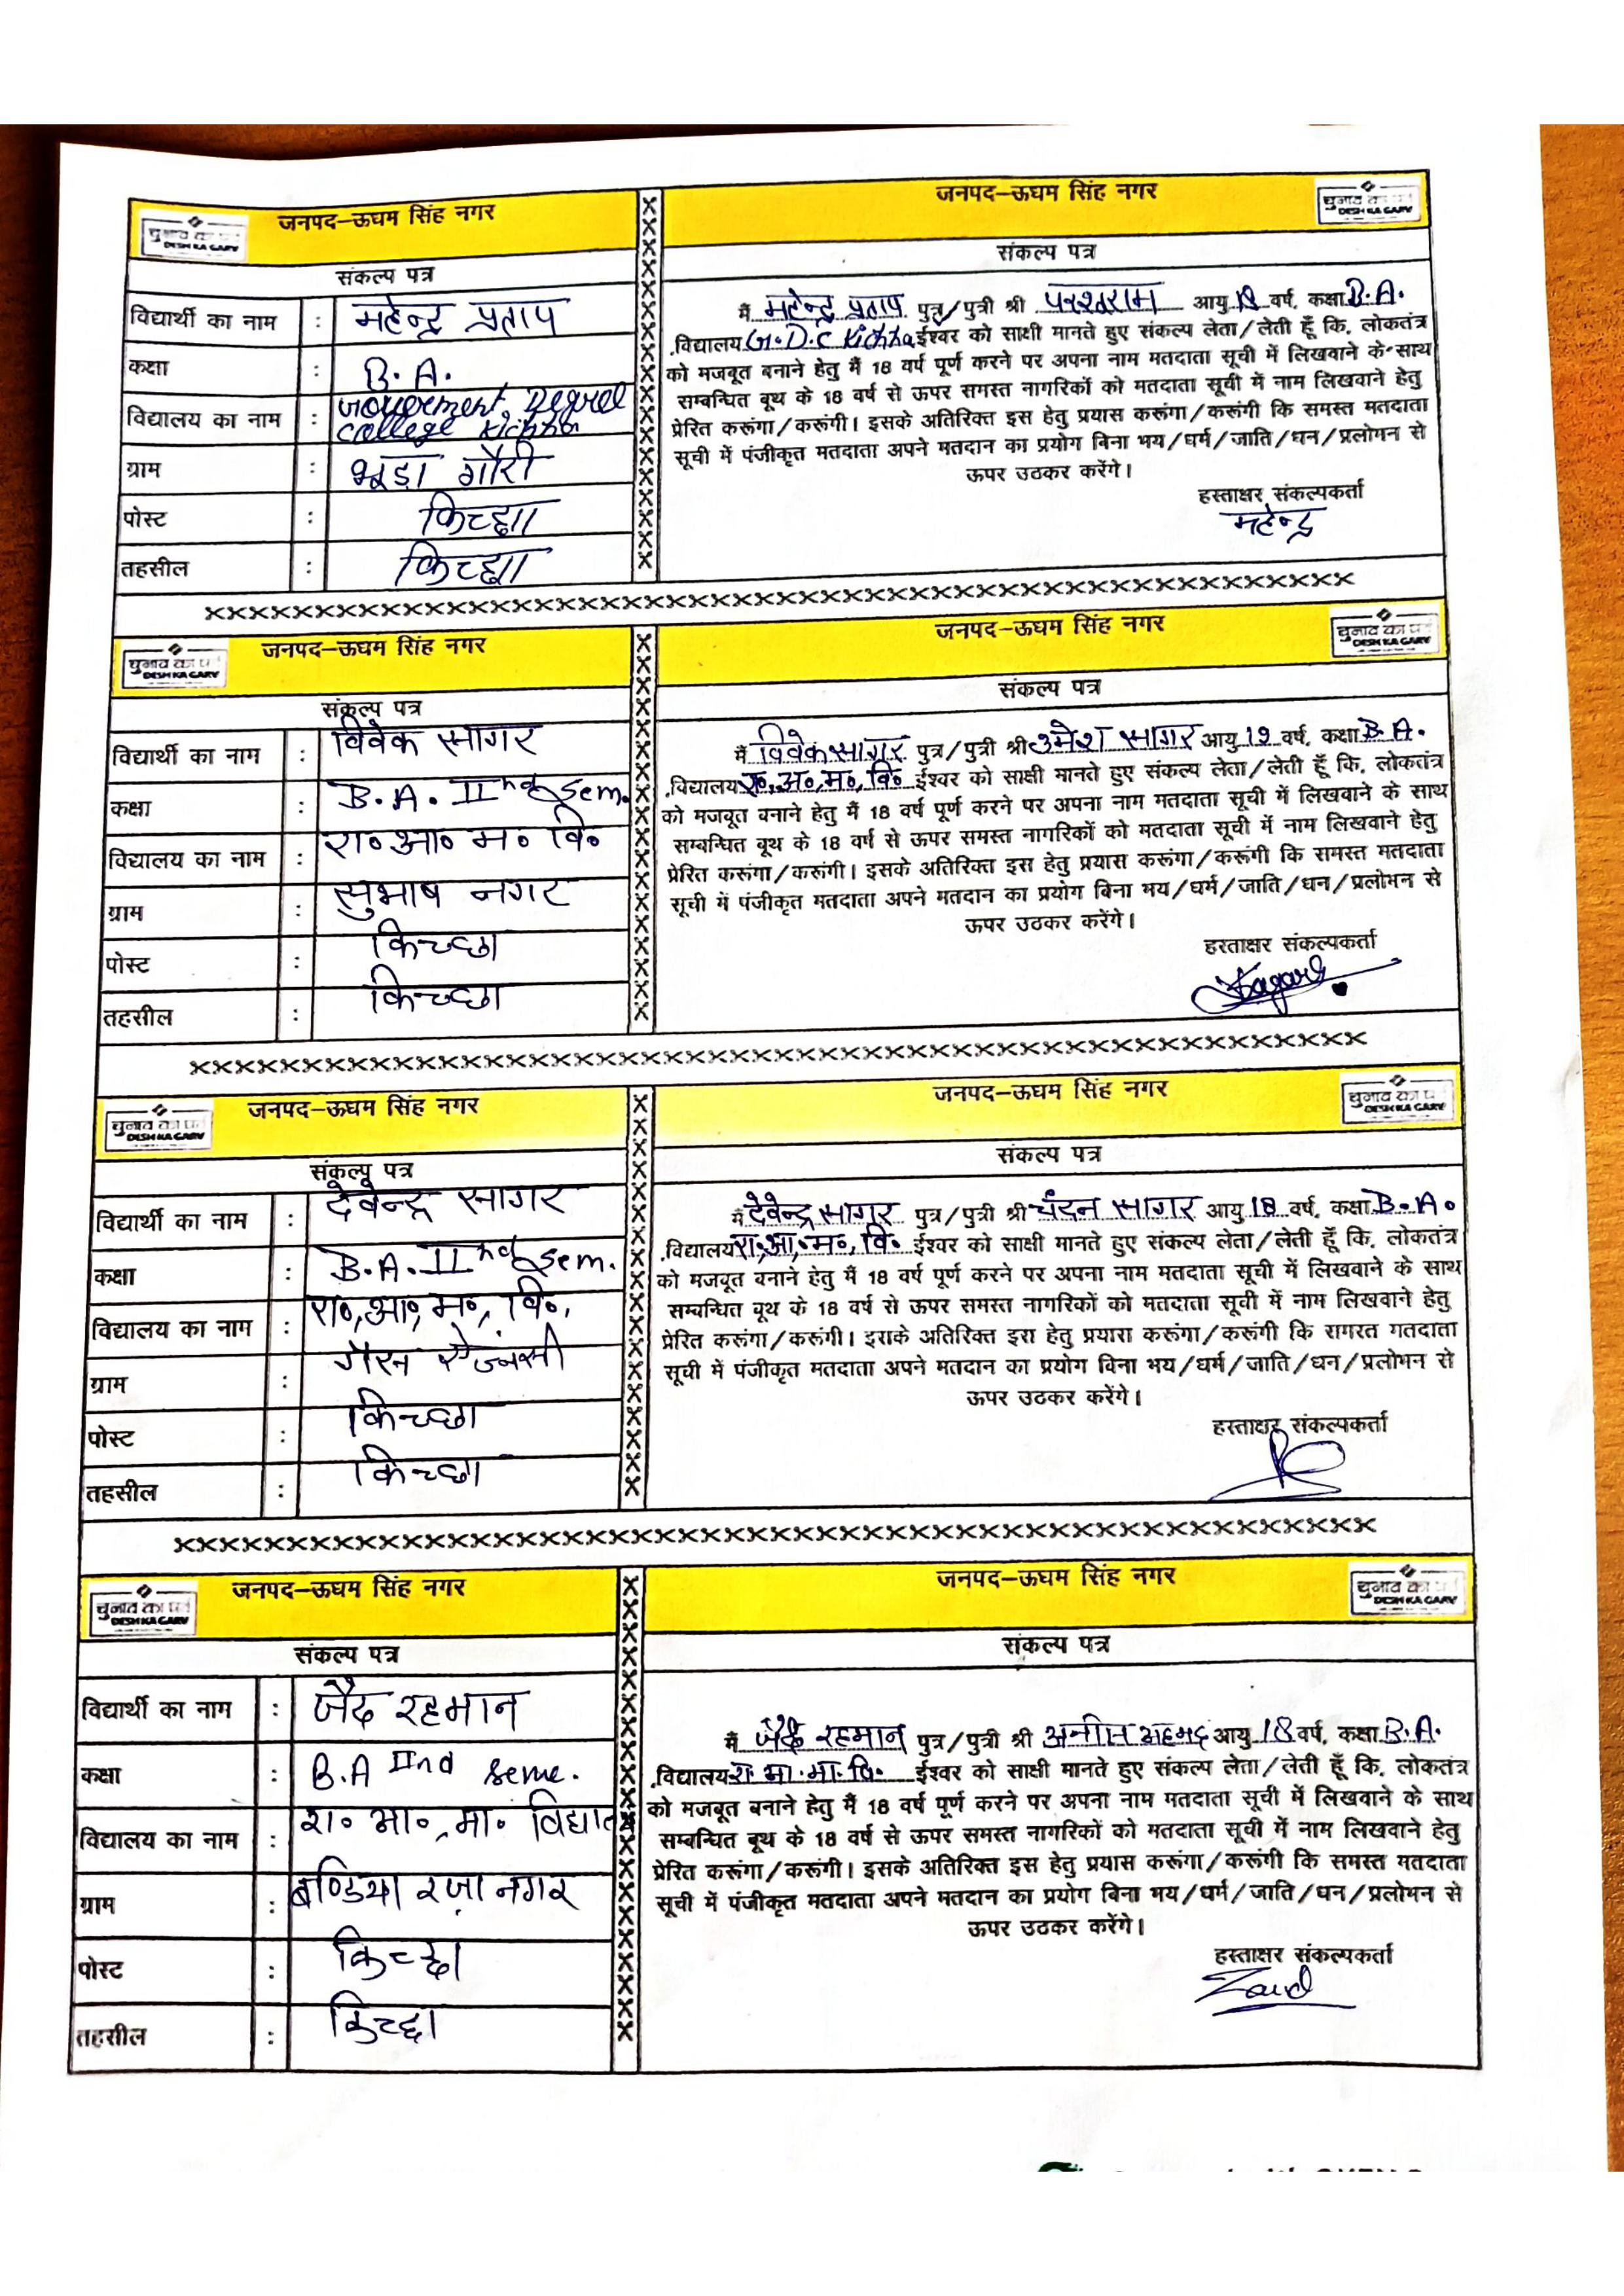 जनपद–ऊधम सिंह नगर
DESH KA GARV
संकल्प पत्र
विद्यार्थी का नाम : महेन्द्र प्रताप
कक्षा : B.A.
विद्यालय का नाम : Degree
college Kichha
ग्राम : भूड़ा गौरी
पोस्ट : किच्छा
तहसील : किच्छा
जनपद–ऊधम सिंह नगर
DESH KA GARV
संकल्प पत्र
मैं महेन्द्र प्रताप पुत्र/पुत्री श्री आयु वर्ष, कक्षा B.A.
विद्यालय G.D.C Kichha ईश्वर को साक्षी मानते हुए संकल्प लेता/लेती हूँ कि, लोकतंत्र
को मजबूत बनाने हेतु मैं 18 वर्ष पूर्ण करने पर अपना नाम मतदाता सूची में लिखवाने के साथ
सम्बन्धित बूथ के 18 वर्ष से ऊपर समस्त नागरिकों को मतदाता सूची में नाम लिखवाने हेतु
प्रेरित करूंगा/करूंगी। इसके अतिरिक्त इस हेतु प्रयास करूंगा/करूंगी कि समस्त मतदाता
सूची में पंजीकृत मतदाता अपने मतदान का प्रयोग बिना भय/धर्म/जाति/धन/प्रलोभन से
ऊपर उठकर करेंगे।
हस्ताक्षर संकल्पकर्ता
महेन्द्र
जनपद–ऊधम सिंह नगर
चुनाव का
DESH KA GARV
संकल्प पत्र
विद्यार्थी का नाम : विवेक सागर
कक्षा : B.A. IInd Sem.
विद्यालय का नाम : रा० आ० म० वि०
ग्राम : सुभाष नगर
पोस्ट : किच्छा
तहसील : किच्छा
जनपद–ऊधम सिंह नगर
चुनाव का
DESH KA GARV
संकल्प पत्र
मैं विवेक सागर पुत्र/पुत्री श्री उमेश सागर आयु 19 वर्ष, कक्षा B.A.
विद्यालय रा०,आ०,म०,वि० ईश्वर को साक्षी मानते हुए संकल्प लेता/लेती हूँ कि, लोकतंत्र
को मजबूत बनाने हेतु मैं 18 वर्ष पूर्ण करने पर अपना नाम मतदाता सूची में लिखवाने के साथ
सम्बन्धित बूथ के 18 वर्ष से ऊपर समस्त नागरिकों को मतदाता सूची में नाम लिखवाने हेतु
प्रेरित करूंगा/करूंगी। इसके अतिरिक्त इस हेतु प्रयास करूंगा/करूंगी कि समस्त मतदाता
सूची में पंजीकृत मतदाता अपने मतदान का प्रयोग बिना भय/धर्म/जाति/धन/प्रलोभन से
ऊपर उठकर करेंगे।
हस्ताक्षर संकल्पकर्ता
जनपद–ऊधम सिंह नगर
चुनाव का
DESH KA GARV
संकल्प पत्र
विद्यार्थी का नाम : देवेन्द्र सागर
कक्षा : B.A. IInd Sem.
विद्यालय का नाम : रा०,आ०,म०,वि०,
ग्राम : गैस ऐजन्सी
पोस्ट : किच्छा
तहसील : किच्छा
जनपद–ऊधम सिंह नगर
चुनाव का
DESH KA GARV
संकल्प पत्र
मैं देवेन्द्र सागर पुत्र/पुत्री श्री चंदन सागर आयु 18 वर्ष, कक्षा B.A.
विद्यालय रा०,आ०,म०,वि० ईश्वर को साक्षी मानते हुए संकल्प लेता/लेती हूँ कि, लोकतंत्र
को मजबूत बनाने हेतु मैं 18 वर्ष पूर्ण करने पर अपना नाम मतदाता सूची में लिखवाने के साथ
सम्बन्धित बूथ के 18 वर्ष से ऊपर समस्त नागरिकों को मतदाता सूची में नाम लिखवाने हेतु
प्रेरित करूंगा/करूंगी। इसके अतिरिक्त इस हेतु प्रयास करूंगा/करूंगी कि समस्त मतदाता
सूची में पंजीकृत मतदाता अपने मतदान का प्रयोग बिना भय/धर्म/जाति/धन/प्रलोभन से
ऊपर उठकर करेंगे।
हस्ताक्षर संकल्पकर्ता
जनपद–ऊधम सिंह नगर
चुनाव का
DESH KA GARV
संकल्प पत्र
विद्यार्थी का नाम : जैद रहमान
कक्षा : B.A IInd Seme.
विद्यालय का नाम : रा० आ०, मा०
ग्राम : बण्डिया रज़ा नगर
पोस्ट : किच्छा
तहसील : किच्छा
जनपद–ऊधम सिंह नगर
चुनाव का
DESH KA GARV
संकल्प पत्र
मैं जैद रहमान पुत्र/पुत्री श्री अनीस अहमद आयु 18 वर्ष, कक्षा B.A.
विद्यालय ईश्वर को साक्षी मानते हुए संकल्प लेता/लेती हूँ कि, लोकतंत्र
को मजबूत बनाने हेतु मैं 18 वर्ष पूर्ण करने पर अपना नाम मतदाता सूची में लिखवाने के साथ
सम्बन्धित बूथ के 18 वर्ष से ऊपर समस्त नागरिकों को मतदाता सूची में नाम लिखवाने हेतु
प्रेरित करूंगा/करूंगी। इसके अतिरिक्त इस हेतु प्रयास करूंगा/करूंगी कि समस्त मतदाता
सूची में पंजीकृत मतदाता अपने मतदान का प्रयोग बिना भय/धर्म/जाति/धन/प्रलोभन से
ऊपर उठकर करेंगे।
हस्ताक्षर संकल्पकर्ता
Zaid